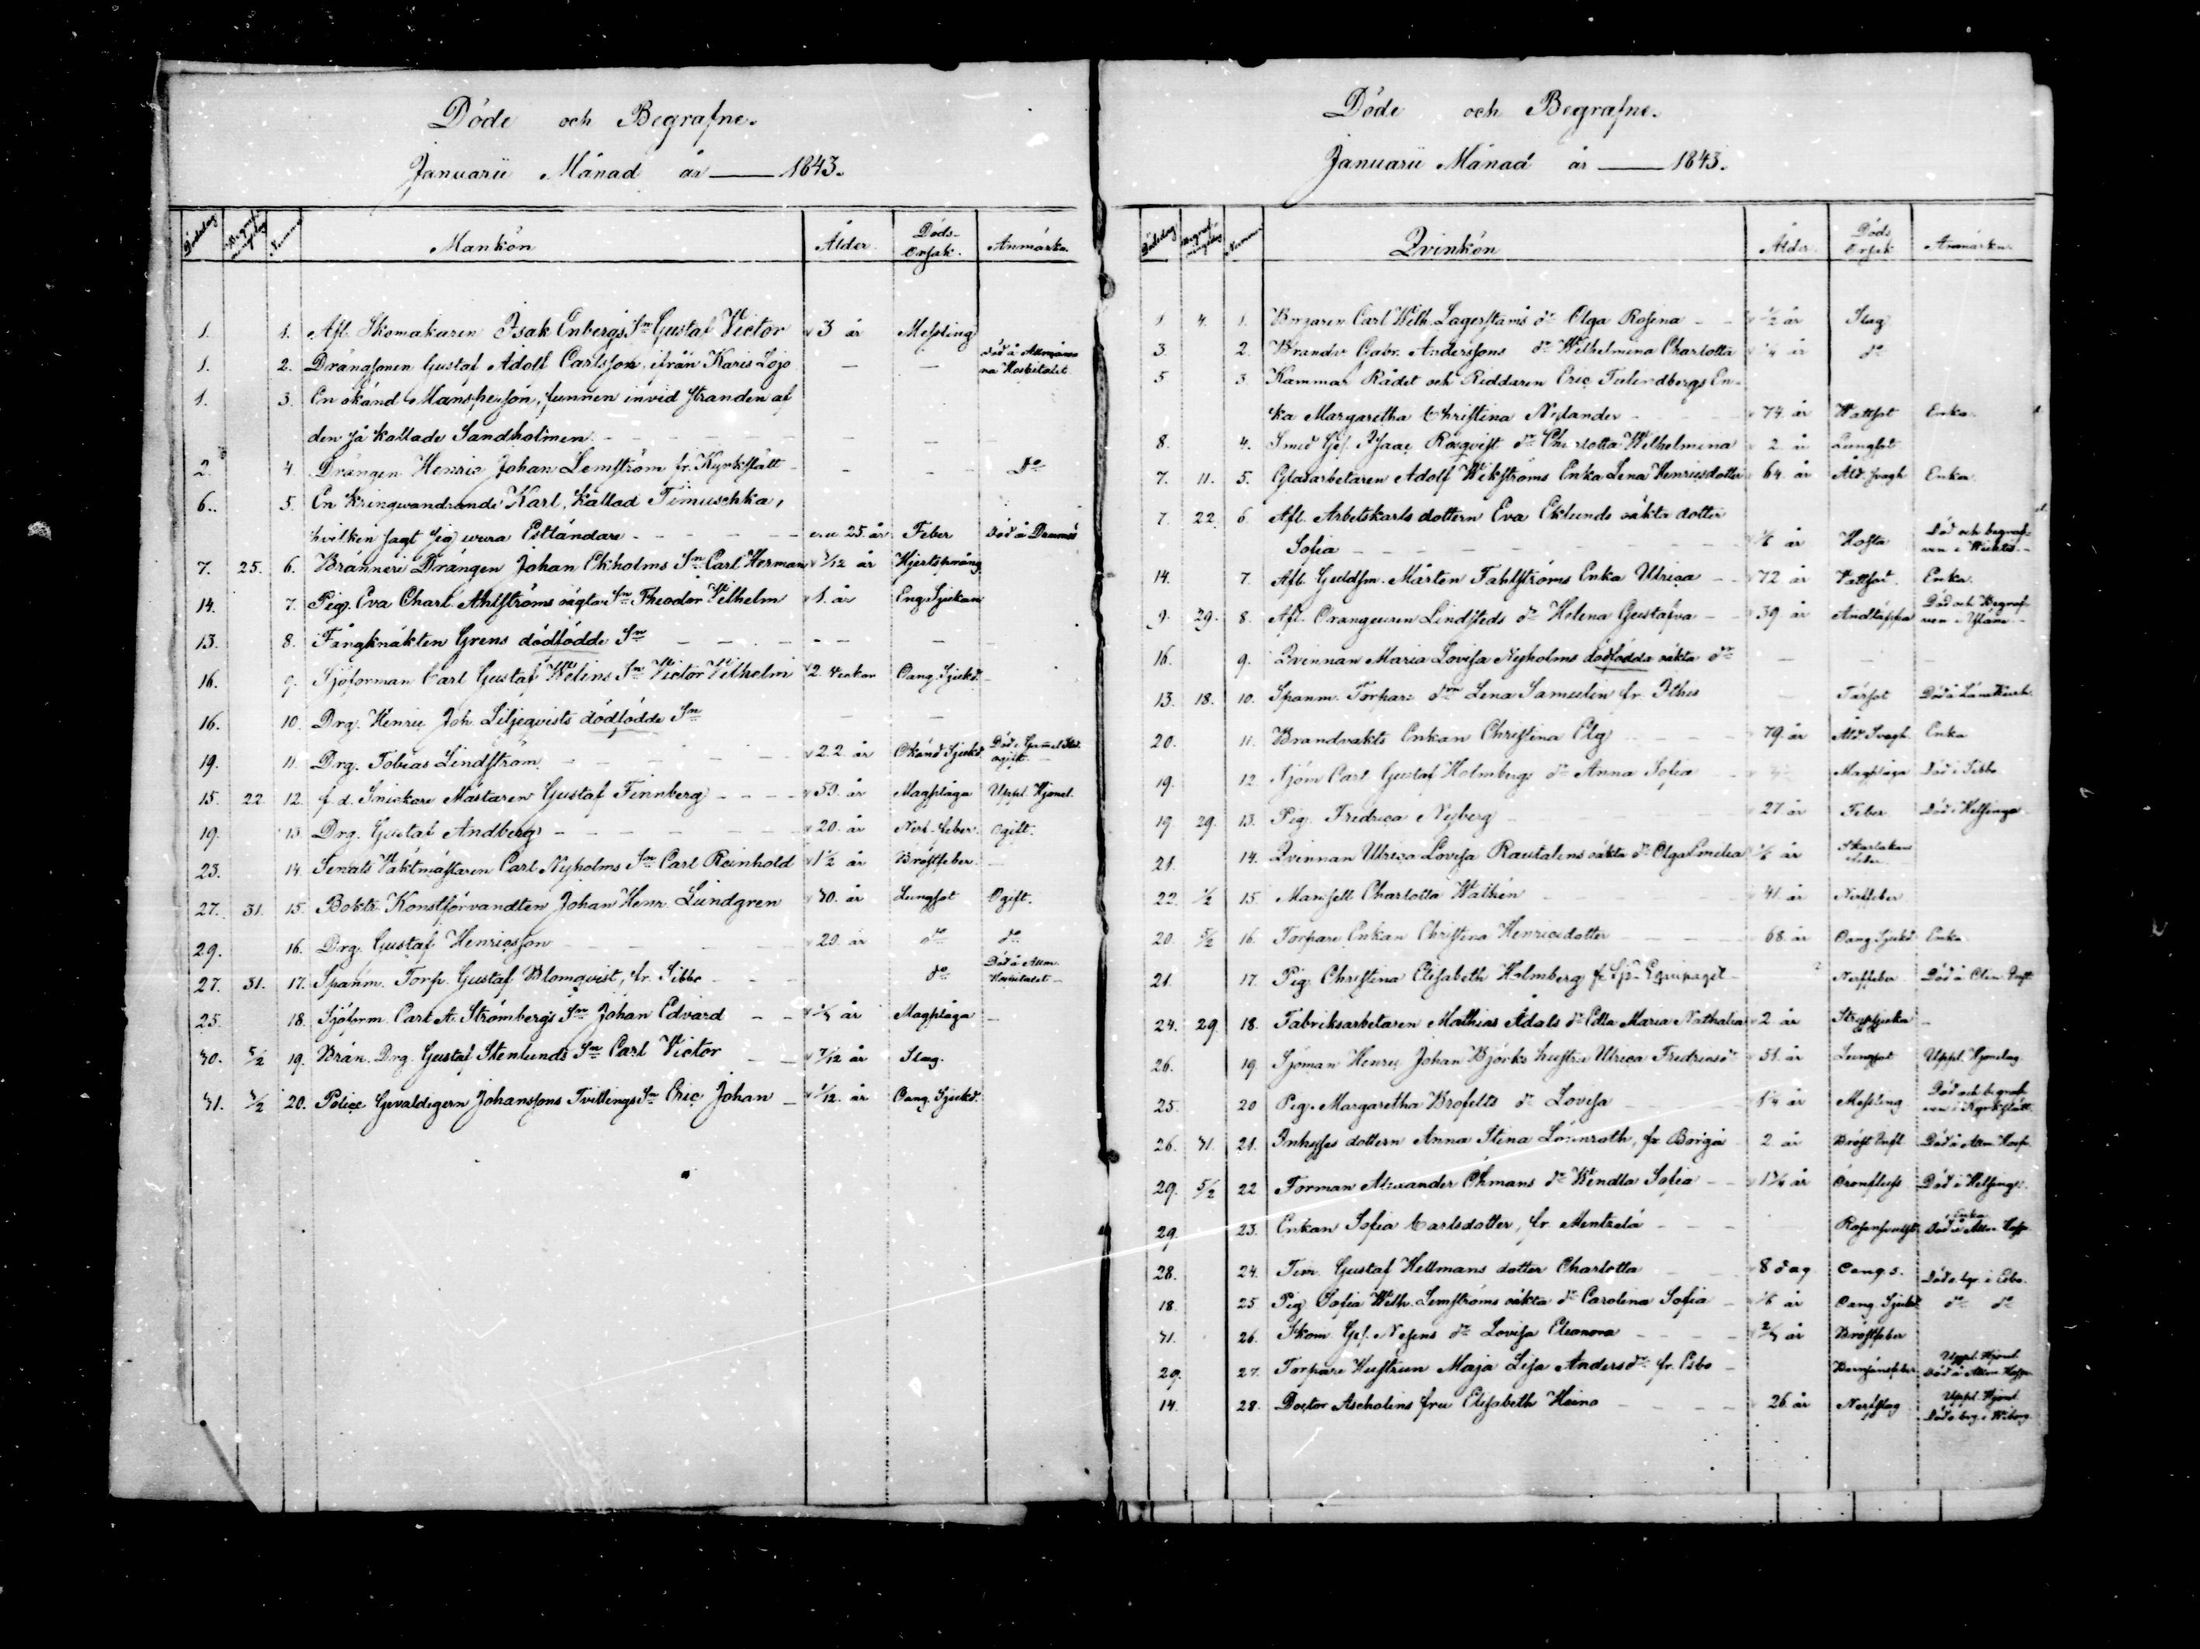 Döde och Begrafne.
Januarii Månad år — 1843.
Dödsdag Begrafningsdag Nummer Mankön Ålder. Döds-Orsak. Anmärkn.
1. 1. Afl. Skomakaren Isak Enbergs Sn Gustaf Victor 3 år Messling
1. 2. Drängsonen Gustaf Adolf Carlsson, ifrån Karis Lojo — — död å Allmänna Hospitalet
1. 3. En okänd Mansperson, funnen invid stranden af
den så kallade Sandholmen — —
2. 4. Drängen Henric Johan Lemström fr. Kyrkslätt - - Do
6. 5. En kringvandrande Karl, kallad Timuschka,
hvilken sagt sig vara Estländare - - - - 25. år Feber död å
7. 25. 6. Bränneri Drängen Johan Ekholms Sn Carl Herman 3/12 år Hjertsprång
14. 7. Pig. Eva Charl. Ahlströms oägta Sn Theodor Wilhelm 1. år Eng. Sjukan
13. 8. Fångknekten Grens dödfödde Sn — — — —
16. 9. Sjöforman Carl Gustaf Welins Sn Victor Wilhelm 2. veckor Oang. Sjukd.
16. 10. Drg. Henric Joh. Liljeqvists dödfödde Sn — —
19. 11. Drg. Tobias Lindström - - - - 22. år Okänd Sjukd. Död i Gammel Stad. ogift
15. 22. 12. f. d. Snickare Mästaren Gustaf Finnberg - - - - 59. år Magplåga Uppl. Hjonel.
19. 13. Drg. Gustaf Andberg - - - - 20. år Nerf. feber. Ogift.
23. 14. Senats Vaktmästaren Carl Nyholms Sn Carl Reinhold 1 1/2 år Bröstfeber —
27. 31. 15. Boktr. Konstförvandten Johan Henr. Lundgren 30. år Lungsot Ogift.
29. 16. Drg. Gustaf Henricsson - - - - 20. år do do
27. 31. 17. Spanm. Torp. Gustaf Blomqvist, fr. Sibbo - - - do Död å Allm. Hospitalet —
25. 18. Sjöform. Carl A. Strömbergs Sn Johan Edvard - - år Magplåga —
30. 5/2 19. Brän. Drg. Gustaf Stenlunds Sn Carl Victor - - 7/12 år Slag.
31. 5/2 20. Police Gevaldigern Johanssons Tvillings Sn Eric Johan - 1/12. år Oang. Sjukd.
Döde och Begrafne.
Januarii Månad år — 1843.
Dödsdag Begrafningsdag Nummer Qvinkön Ålder. Döds Orsak Anmärkn.
1 4. 1. Carl Wilh. Lagerstams dr Olga Rosina - - 1/2 år Slag
3. 2. Brandv. Gabr. Anderssons dr Wilhelmina Charlotta 1/4 år do
5 3. Kammar Rådet och Riddaren Eric Tulindbergs En-
ka Margaretha Christina Nylander - - - 74 år Wattsot Enka.
8. 4. Smed Ges. Isaac Rosqvist dr Charlotta Wilhelmina 2 år Lungsot
7. 11. 5. Glasarbetaren Adolf Wikströms Enka Lena Henricsdotter 64. år Åld. svagh Enka.
7. 22. 6. Afl. Arbetskarls dottern Eva Eklunds oäkta dotter
Sofia - - - - år Hosta Död och begrafven i
14. 7. Afl. Guldsm. Mårten Tahlströms Enka Ulrica - - 72 år Vattsot. Enka.
9. 29. 8. Afl. Orangeuren Lindsteds dr Helena Gustafva - - 39 år Andtäppa Död och Begrafven i
16. 9. Qvinnan Maria Lovisa Nyholms dödfödda oäkta dr — — —
13. 18. 10. Spanm. Torpare drn Lena Samuelin fr. Ithis — Tärsot Död å
20. 11. Brandvakts Enkan Christina Elg - - - - 79. år Åld. Svagh. Enka
19. 12. Sjöm Carl Gustaf Holmbergs dr Anna Sofia - - Magplåga Död i Sibbo
19 29. 13. Pig. Fredrica Nyberg - - - - 27. år Feber Död i Helsinge
21. 14. Qvinnan Ulrica Lovisa Rautalins oäkta dr Olga Emilia år Skarlakansfeber
22. 1/2 15. Mamsell Charlotta Walhén - - - 41. år Nerffeber
20. 5/2 16. Torpare Enkan Christina Henricsdotter - - - 68. år Oang. Sjukd. Enka
21. 17. Pig. Christina Elisabeth Holmberg fr. Sjö Equipaget - Nerffeber Död å Clin. Inst.
24. 29 18. Fabriksarbetaren Mathias Ådals dr Edla Maria Nathalia 2 år Strypsjuka -
26. 19. Sjöman Henric Johan Björks hustru Ulrica Fredricsdr 51. år Lungsot Uppl. Hjonelag
25. 20 Pig. Margaretha Brofelts dr Lovisa - - - 1 1/4 år Messling Död och begrafven i Kyrkslätt
26. 31. 21. Inhyses dottern Anna Stina Lönnroth, fr. Borgå - 2 år Bröst Infl. Död å Allm. Hosp.
29. 5/2 22 Forman Alexander Öhmans dr Wendla Sofia - - 1 3/4 år Öronfluss Död i Helsinge.
29. 23. Enkan Sofia Carlsdotter, fr. Mentzelä - - - Enka Död å Allm. Hosp
28. 24. Tim. Gustaf Hellmans dotter Charlotta - - 8 dag. Oang. s. Död o. bgr. i Esbo.
18. 25 Pig. Sofia Wilh. Lemströms oäkta dr Carolina Sofia - 1/6 år Oang. Sjukd. do do
31. 26. Skom. Ges. Nesens dr Lovisa Eleonora - - - - år Bröstfeber
29. 27. Torpare Hustrun Maja Lisa Andersdr fr. Esbo - Barnsängsfeber Uppl. Hjonel. Död å Allm. Hosp.
14. 28. Doctor Ascholins fru Elisabeth Heino - - - - 26. år Nerfslag Uppl. Hjonel. Död o. beg. i Wiborg.